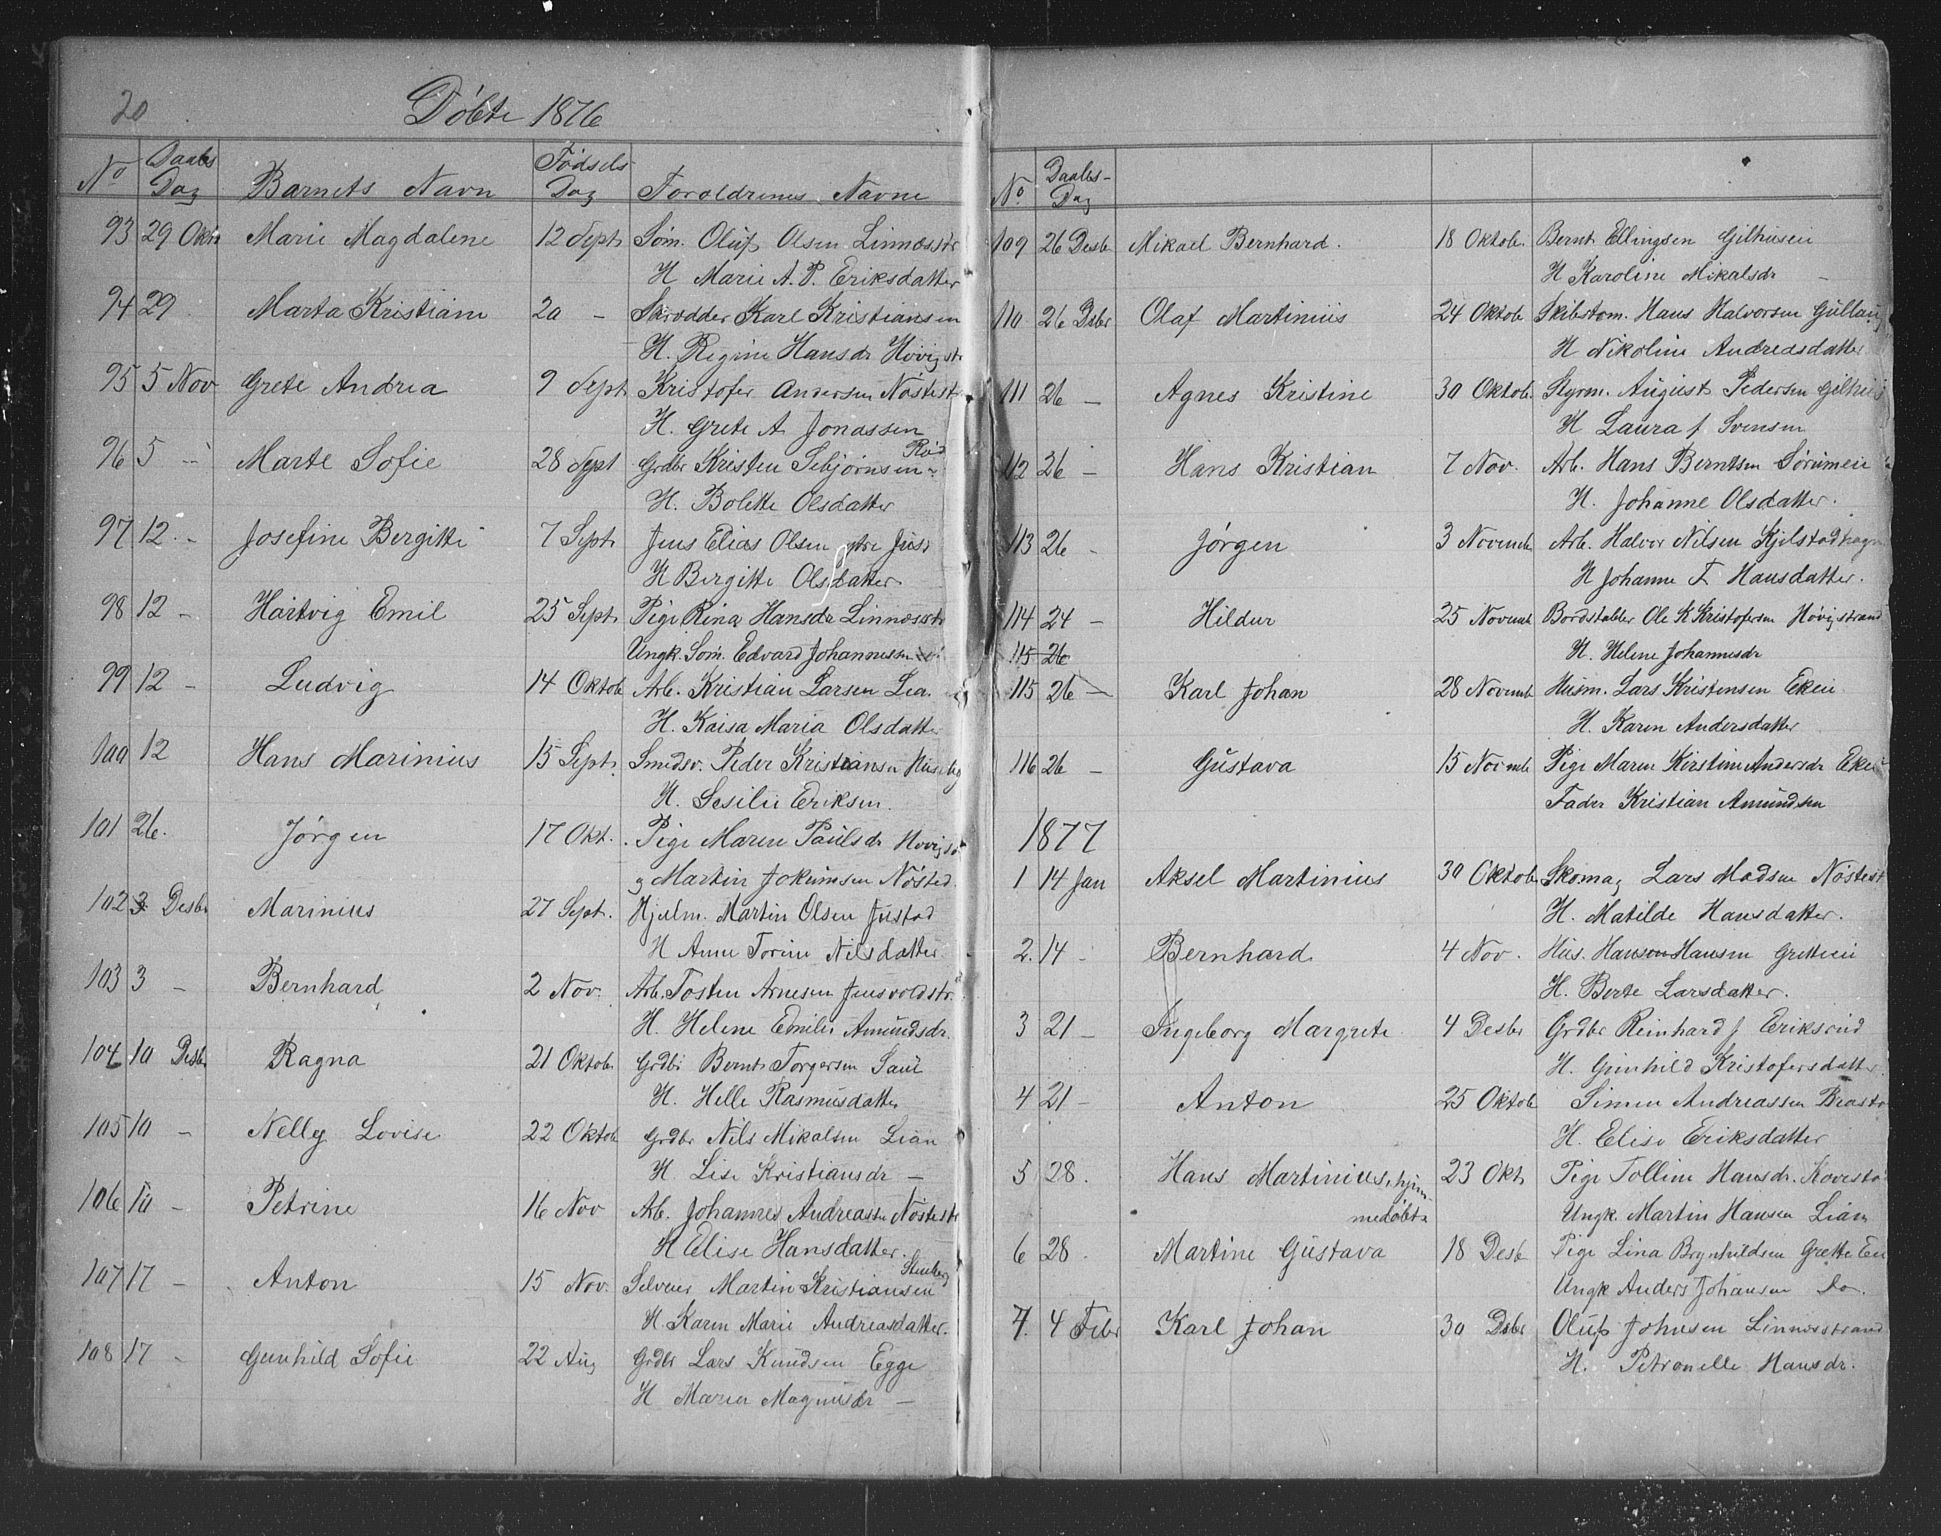 20
Döbte 1876
No Daabs Dag Barnets Navn Födsels Dag Foroldrenes Navne
93 29 Okt. Marie Magdalene 12 Sept. Söm. Oluf Olsen Linnæsstr
H Marie A. P. Eriksdatter
94 29 Marta Kristiane 20 – Skrædder Karl Kristiansen
H. Regine Hansdr Hövigstr
95 5 Nov Grete Andrea 9 Sept. Kristofer Andersen Nöstestr
H. Grete A Jonassen
96 5 – Marte Sofie 28 Sept Grdbr Kristen Sebjörnsen Röd
H. Bolette Olsdatter
97 12 – Josefine Bergitte 7 Sept. Jens Elias Olsen
H Bergitte Olsdatter
98 12 – Hartvig Emil 25 Sept. Pige Rina Hansdr Linnæsstr
Ungk. Söm. Edvard Johannesen do
99 12 – Ludvig 14 Oktob. Arb. Kristian Larsen Lia
H. Kaisa Maria Olsdatter
100 12 Hans Marinius 15 Sept. Smedsv. Peder Kristiansen Huseby
H. Sesilie Eriksen.
101 26. Jörgen 17 Okt. Pige Maren Paulsdr Hövigs
og Martin Jokumsen Nösted.
102 3 Desbr Marinius 27 Sept. Hjulm. Martin Olsen Justad
H Anne Torine Nilsdatter
103 3 – Bernhard 2 Nov. Arb. Tosten Arnesen Jensvoldstr.
H. Helene Emilie Amundsdr.
104 10 Desbr Ragna 21 Oktob. Grdbr Bernt Torgersen Saul
H. Helle Rasmusdatter
105 10 – Nelly Lovise 22 Oktob Grdbr Nils Mikalsen Lian
H. Lise Kristiansdr –
106 10 – Petrine 16 Nov Arb. Johannes Andreasen Nöstestr
H Elise Hansdatter.
107 17 – Anton 15 Nov. Selveier Martin Kristiansen Stenberg
H. Karen Marie Andreasdatter.
108 17 – Gunhild Sofie 22 Aug Grdbr Lars Knudsen Egge
H Maren Magnusdr –
No. Daabs- Dag
109 26 Desbr Mikael Bernhard. 18 Oktob. Bernt Ellingsen Gilhuseie
H Karoline Mikalsdr –
110 26 Dsbr Olaf Martinius 24 Oktob Skibstöm. Hans Halvorsen Gullaug
H Nikoline Andreasdatter
111 26 – Agnes Kristine 30 Oktob. Styrm. August Pedersen Gilhus
H Laura J Svensen
112 26 – Hans Kristian 7 Nov. Arb. Hans Berntsen Sörumeie
H. Johanne Olsdatter.
113 26 – Jörgen 3 Novemb Arb. Halvor Nilsen Kjelstadhagen
H Johanne F. Hansdatter.
114 24 – Hildur 25 Novemb Bordstabler Ole K Kristofersen Hövigstrand
115 26 H. Helene Johannesdr
115 26 – Karl Johan 28 Novemb Husm. Lars Kristensen Ekeie
H. Karen Andersdatter
116 26 – Gustava 15 Novmb Pige Maren Kirstine Andersdr Ekeie
Fader Kristian Amundsen
1877
1 14 Jan Aksel Martinius 30 Oktob Skomag Lars Madsen Nöstestr
H. Matilde Hansdatter.
2. 14 – Bernhard 4 Nov. Hus. Hanson Hansen Gretteeie
H. Berte Larsdatter.
3 21 – Ingeborg Margrete 4 Desbr Grdbr Reinhard J Eriksrud
H. Gunhild Kristofersdatter
4 21 – Anton 25 Oktob Simen Andreassen
H. Elise Eriksdatter
5 28. Hans Martinius, hjem- 23 Okt. Pige Tolline Hansdr.
medöbt Ungk. Martin Hansen Lian
6 28. Martine Gustava 18 Desb Pige Lina Brynhildsen Grette Eie
Ungk Anders Johansen Do.
7. 4 Febr Karl Johan 30 Dsbr Oluf Johnsen Linnæsstrand
H. Petronelle Hansdr.